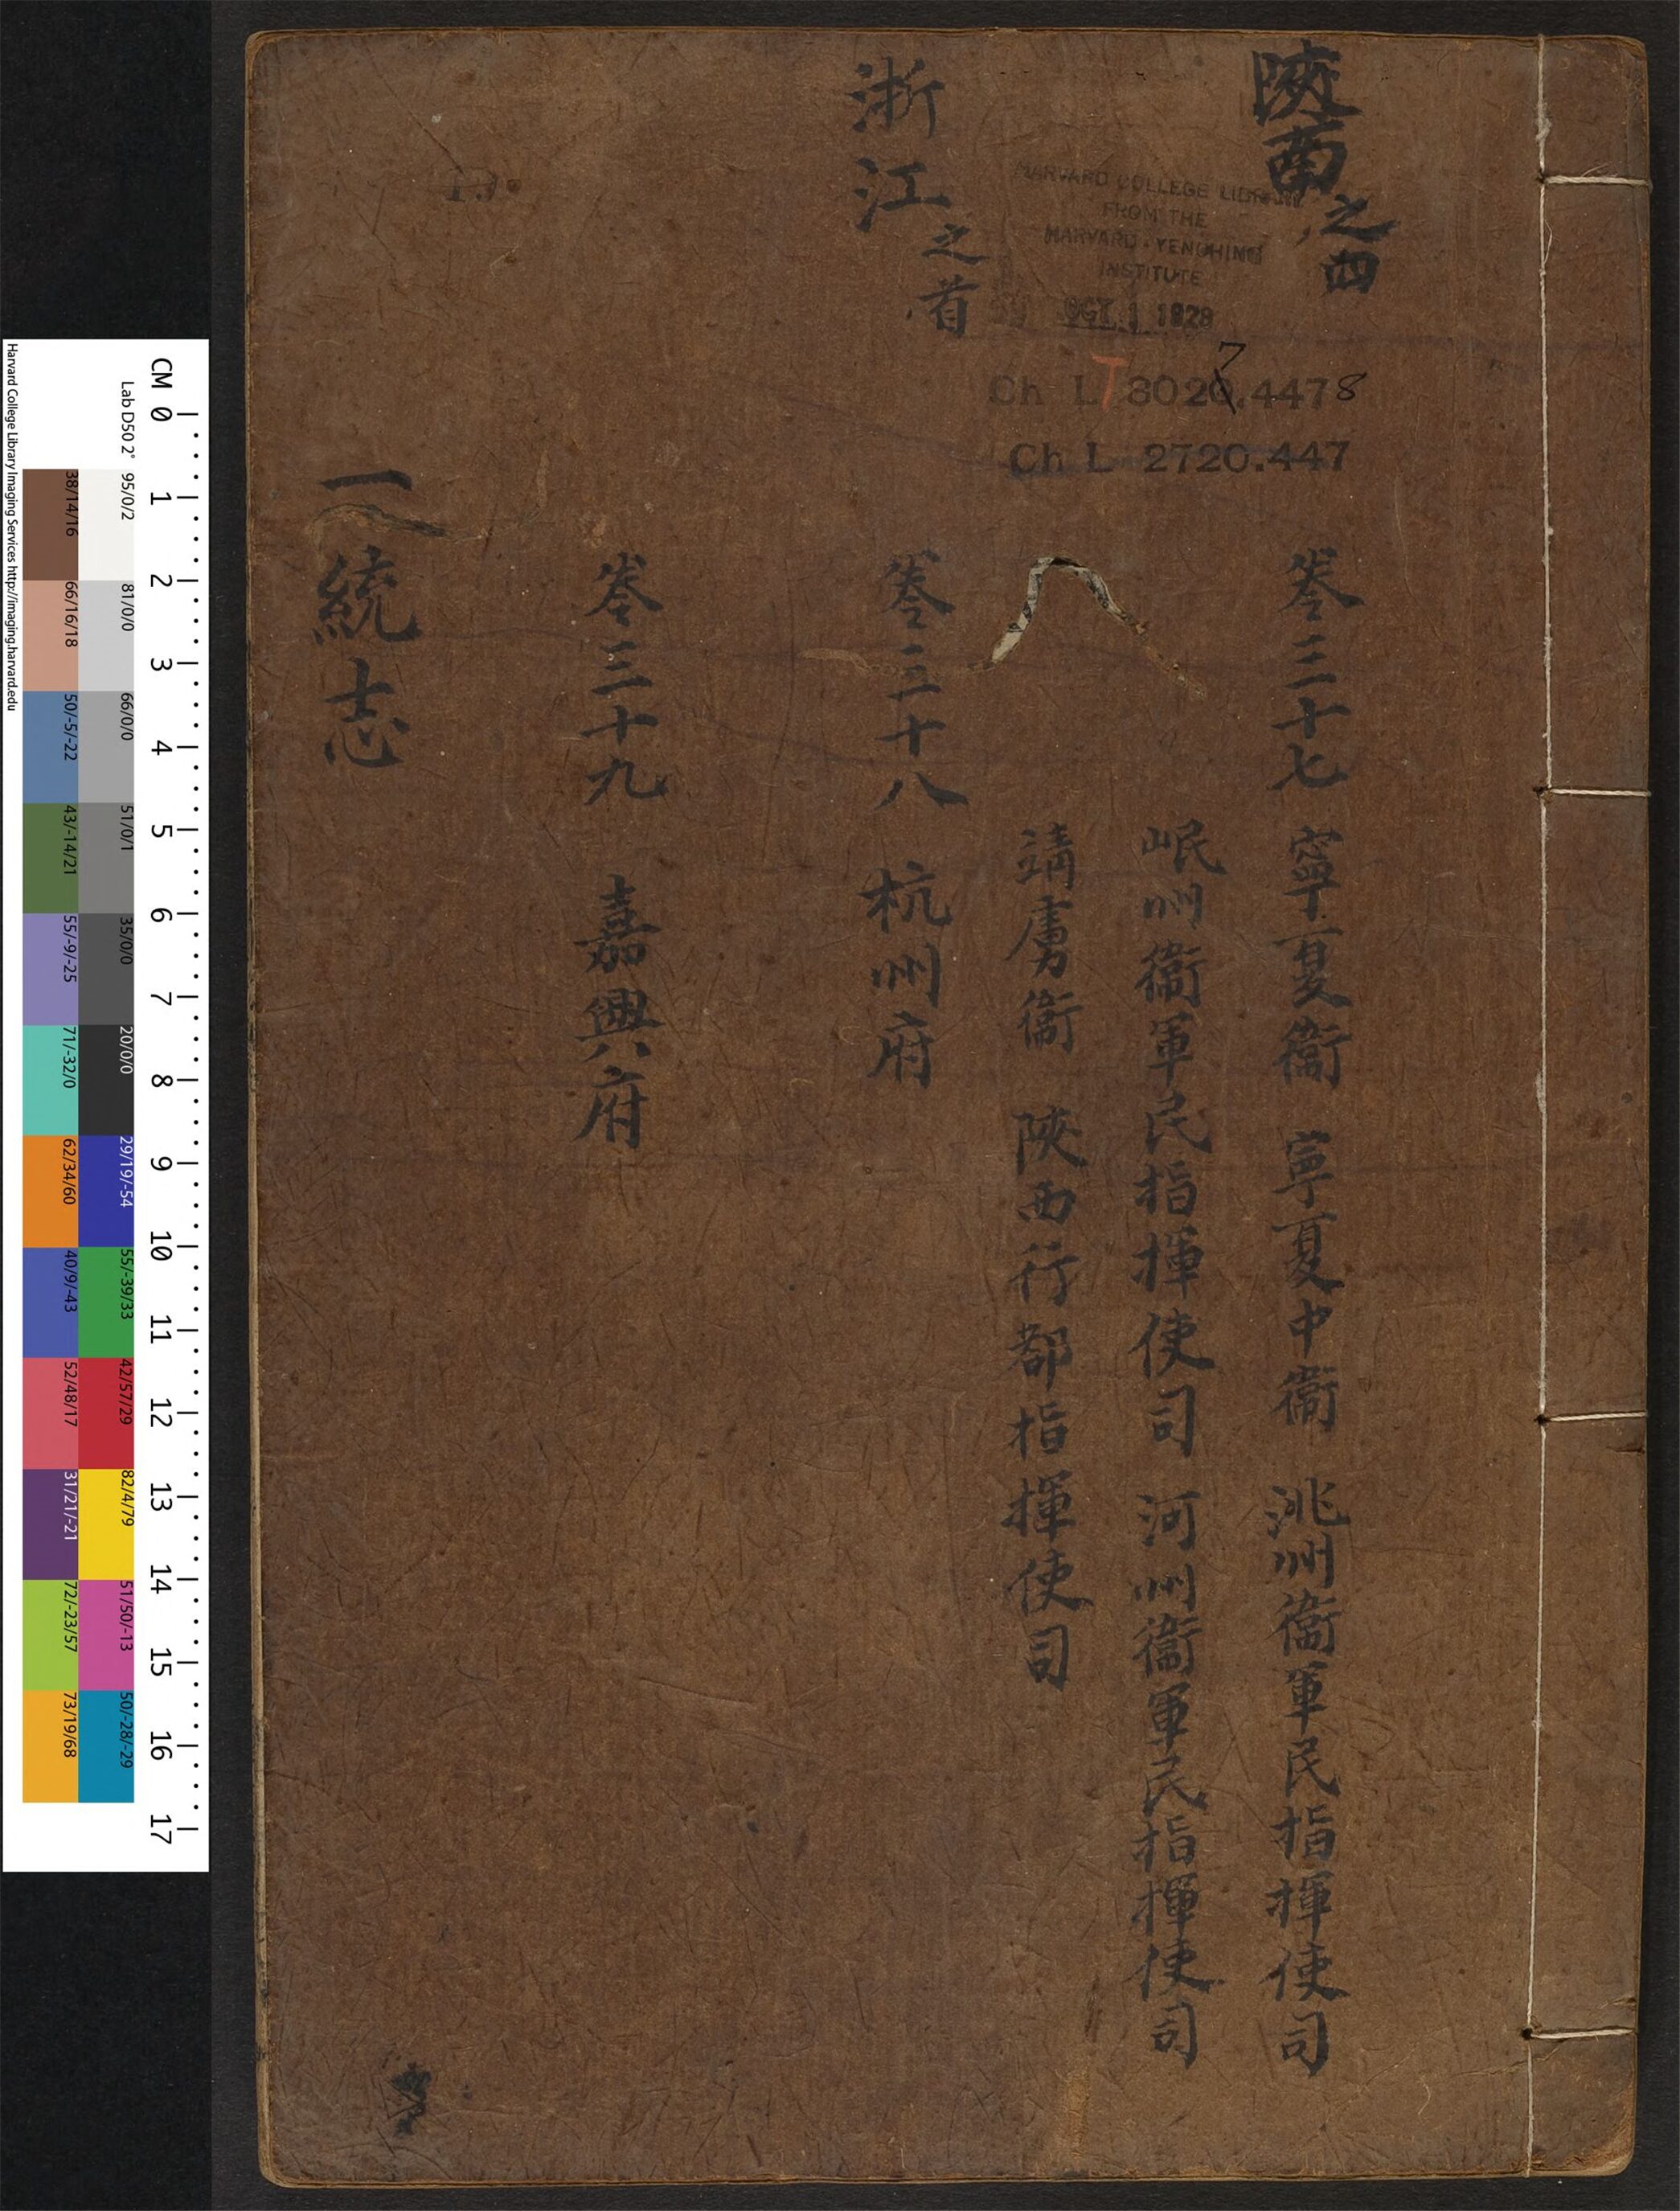 陜西之四
卷三十七 寧夏衞 寧夏中衞 洮州衞軍民指揮使司
岷州衞軍民指揮使司 河州衞軍民指揮使司
靖虜衞 陜西行都指揮使司
浙江之首
卷三十八 杭州府
卷三十九 嘉興府
一統志
HARVARD COLLEGE LIBRARY
FROM THE
HARVARD-YENCHING
INSTITUTE
OCT 1 1928
7
Ch L T 3020.4478
Ch L 2720.447
CM 0 1 2 3 4 5 6 7 8 9 10 11 12 13 14 15 16 17
Lab D50 2° 95/0/2 81/0/0 66/0/0 51/0/1 35/0/0 20/0/0 29/19/-54 55/-39/33 42/57/29 82/4/79 51/50/-13 50/-28/-29
38/14/16 66/16/18 50/-5/-22 43/-14/21 55/-9/-25 71/-32/0 62/34/60 40/9/-43 52/48/17 31/21/-21 72/-23/57 73/19/68
Harvard College Library Imaging Services http://imaging.harvard.edu